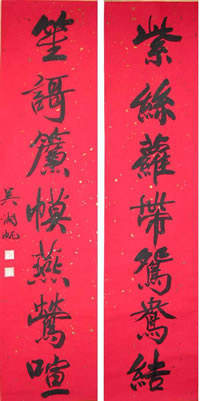 紫絲蘿帶鴛鴦結
笙謌簾幙燕鶯喧
吳湖帆